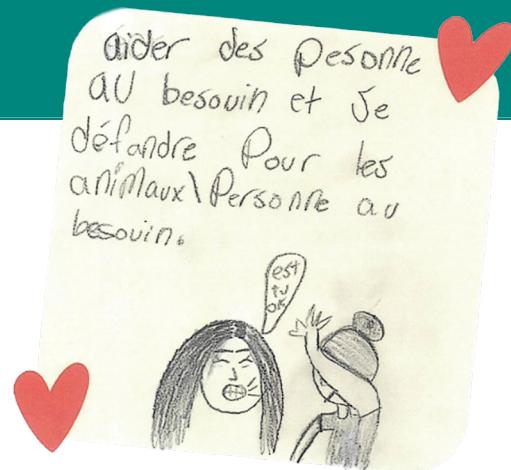 aider des pesonne
AU besouin et Je
défandre Pour les
animaux\Personne au
besouin.
est
tu
ok